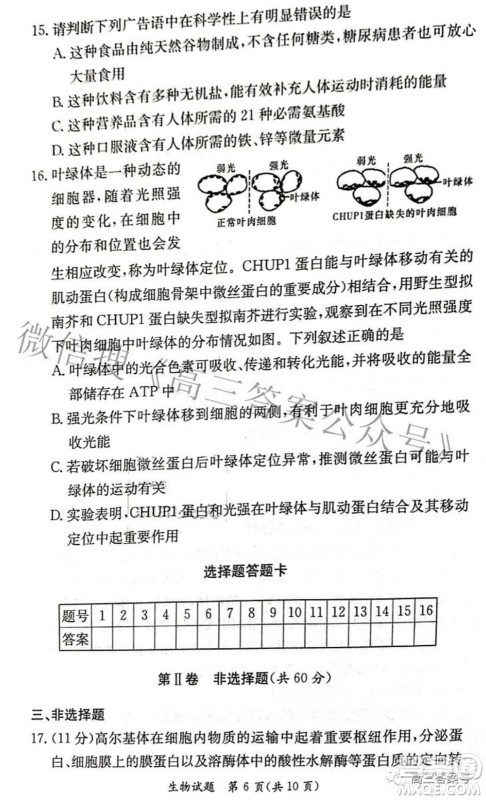 15. 请判断下列广告语中在科学性上有明显错误的是
A. 这种食品由纯天然谷物制成,不含任何糖类,糖尿病患者也可放心
大量食用
B. 这种饮料含有多种无机盐,能有效补充人体运动时消耗的能量
C. 这种营养品含有人体所需的 21 种必需氨基酸
D. 这种口服液含有人体所需的铁、锌等微量元素
16. 叶绿体是一种动态的
细胞器,随着光照强
度的变化,在细胞中
的分布和位置也会发
弱光 强光 叶绿体
正常叶肉细胞
弱光 强光 叶绿体
CHUP1蛋白缺失的叶肉细胞
生相应改变,称为叶绿体定位。CHUP1 蛋白能与叶绿体移动有关的
肌动蛋白(构成细胞骨架中微丝蛋白的重要成分)相结合,用野生型拟
南芥和 CHUP1 蛋白缺失型拟南芥进行实验,观察到在不同光照强度
下叶肉细胞中叶绿体的分布情况如图。下列叙述正确的是
A. 叶绿体中的光合色素可吸收、传递和转化光能,并将吸收的能量全
部储存在 ATP 中
B. 强光条件下叶绿体移到细胞的两侧,有利于叶肉细胞更充分地吸
收光能
C. 若破坏细胞微丝蛋白后叶绿体定位异常,推测微丝蛋白可能与叶
绿体的运动有关
D. 实验表明,CHUP1 蛋白和光强在叶绿体与肌动蛋白结合及其移动
定位中起重要作用
选择题答题卡
题号 1 2 3 4 5 6 7 8 9 10 11 12 13 14 15 16
答案
第Ⅱ卷 非选择题(共 60 分)
三、非选择题
17. (11 分)高尔基体在细胞内物质的运输中起着重要枢纽作用,分泌蛋
白、细胞膜上的膜蛋白以及溶酶体中的酸性水解酶等蛋白质的定向转
生物试题 第 6 页(共 10 页)
微信搜《高三答案公众号》
高三答案号